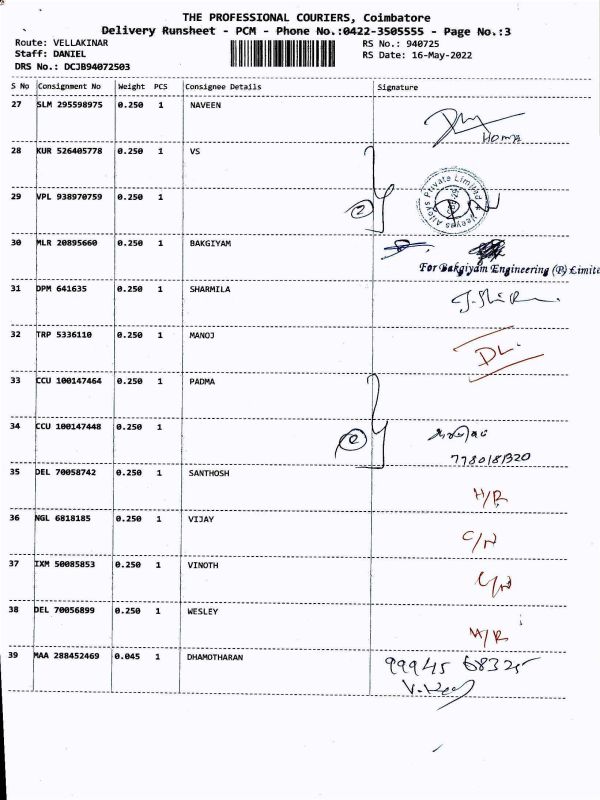 THE PROFESSIONAL COURIERS, Coimbatore
Delivery Runsheet - PCM - Phone No.:0422-3505555 - Page No.:3
Route: VELLAKINAR RS No.: 940725
Staff: DANIEL RS Date: 16-May-2022
DRS No.: DCJB94072503
S No Consignment No Weight PCS Consignee Details Signature
27 SLM 295598975 0.250 1 NAVEEN
Home
28 KUR 526405778 0.250 1 VS
29 VPL 938970759 0.250 1
2
Alloys Private Limited
30 MLR 20895660 0.250 1 BAKGIYAM
For Bakgiyam Engineering (P) Limite
31 DPM 641635 0.250 1 SHARMILA
32 TRP 5336110 0.250 1 MANOJ
33 CCU 100147464 0.250 1 PADMA
34 CCU 100147448 0.250 1
35 DEL 70058742 0.250 1 SANTHOSH
H/R
36 NGL 6818185 0.250 1 VIJAY
C/N
37 IXM 50085853 0.250 1 VINOTH
C/N
38 DEL 70056899 0.250 1 WESLEY
39 MAA 288452469 0.045 1 DHAMOTHARAN
99945 68325